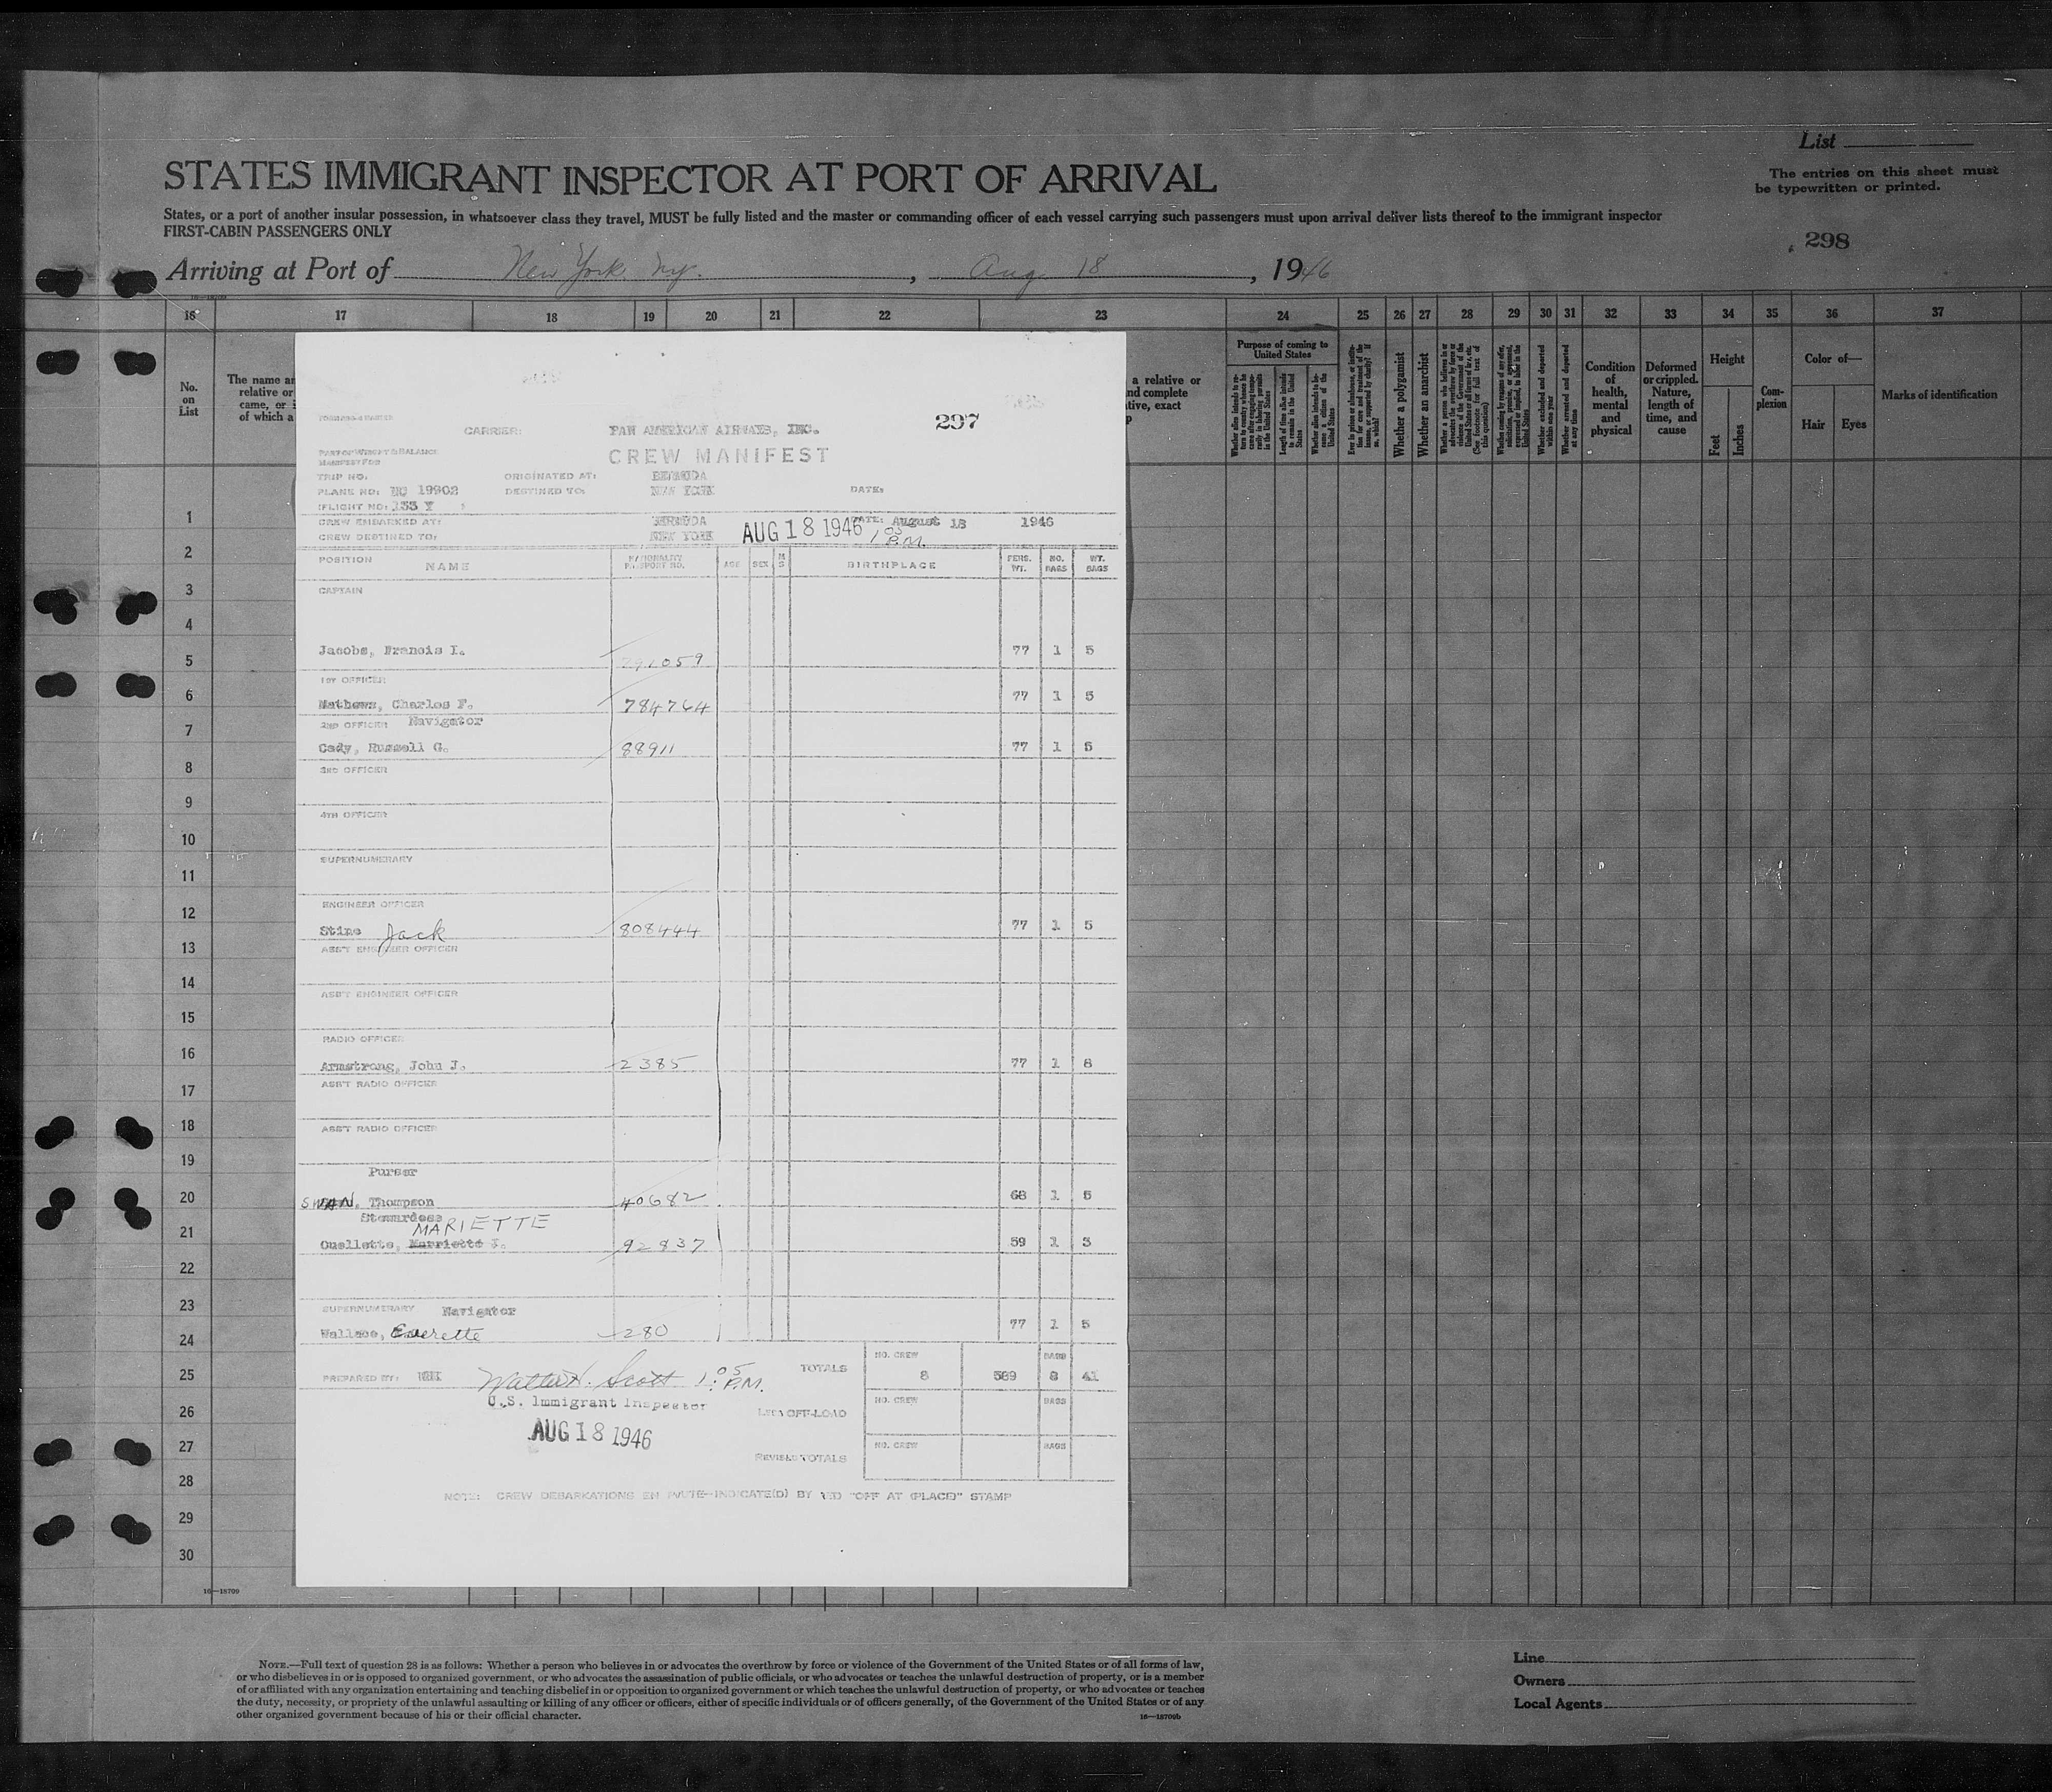 List
The entries on this sheet must
be typewritten or printed.
STATES IMMIGRANT INSPECTOR AT PORT OF ARRIVAL
States, or a port of another insular possession, in whatsoever class they travel, MUST be fully listed and the master or commanding officer of each vessel carrying such passengers must upon arrival deliver lists thereof to the immigrant inspector
FIRST-CABIN PASSENGERS ONLY
298
Arriving at Port of New York, Ny. , Aug 18 , 1946
16 17 18 19 20 21 22 23 24 25 26 27 28 29 30 31 32 33 34 35 36 37
No.
on
List
The name an
relative or
came, or i
of which a
a relative or
nd complete
tive, exact
p
Purpose of coming to
United States
Whether a polygamist
Whether an anarchist
Condition
of
health,
mental
and
physical
Deformed
or crippled.
Nature,
length of
time, and
cause
Height
Feet
Inches
Com-
plexion
Color of—
Hair Eyes
Marks of identification
297
CARRIER: PAN AMERICAN AIRWAYS, INC.
CREW MANIFEST
PART OF WEIGHT & BALANCE
MANIFEST FOR
TRIP NO. ORIGINATED AT: BERMUDA
PLANE NO: NC 19902 DESTINED TO: NEW YORK DATE:
FLIGHT NO: 133 Y
CREW EMBARKED AT: BERMUDA DATE: August 18 1946
CREW DESTINED TO: NEW YORK AUG 18 1946 1 05 P.M.
POSITION NAME NATIONALITY PASSPORT NO. AGE SEX M S BIRTHPLACE PERS. WT. NO. BAGS WT. BAGS
CAPTAIN
Jacobs, Francis I. 291059 77 1 5
1ST OFFICER
Mathews, Charles F. 784764 77 1 5
2ND OFFICER Navigator
Cady, Russell G. 88911 77 1 5
3RD OFFICER
4TH OFFICER
SUPERNUMERARY
ENGINEER OFFICER
Stine Jack 808444 77 1 5
ASS'T ENGINEER OFFICER
ASS'T ENGINEER OFFICER
RADIO OFFICER
Armstrong, John J. 2385 77 1 8
ASS'T RADIO OFFICER
ASS'T RADIO OFFICER
Purser
SWAN, Thompson 40682 68 1 5
Stewardess
MARIETTE
Ouellette, Marriette J. 92837 59 1 3
SUPERNUMERARY Navigator
Wallace, Everette 280 77 1 5
PREPARED BY: Walter H. Scott 1:05 P.M. TOTALS NO. CREW 8 589 BAGS 8 41
U.S. Immigrant Inspector
LESS OFF-LOAD NO. CREW BAGS
AUG 18 1946
REVISED TOTALS NO. CREW BAGS
NOTE: CREW DEBARKATIONS EN ROUTE—INDICATE(D) BY RED "OFF AT (PLACE)" STAMP
1
2
3
4
5
6
7
8
9
10
11
12
13
14
15
16
17
18
19
20
21
22
23
24
25
26
27
28
29
30
16—18709
NOTE.—Full text of question 28 is as follows: Whether a person who believes in or advocates the overthrow by force or violence of the Government of the United States or of all forms of law,
or who disbelieves in or is opposed to organized government, or who advocates the assassination of public officials, or who advocates or teaches the unlawful destruction of property, or is a member
of or affiliated with any organization entertaining and teaching disbelief in or opposition to organized government or which teaches the unlawful destruction of property, or who advocates or teaches
the duty, necessity, or propriety of the unlawful assaulting or killing of any officer or officers, either of specific individuals or of officers generally, of the Government of the United States or of any
other organized government because of his or their official character.
16—18709b
Line
Owners
Local Agents